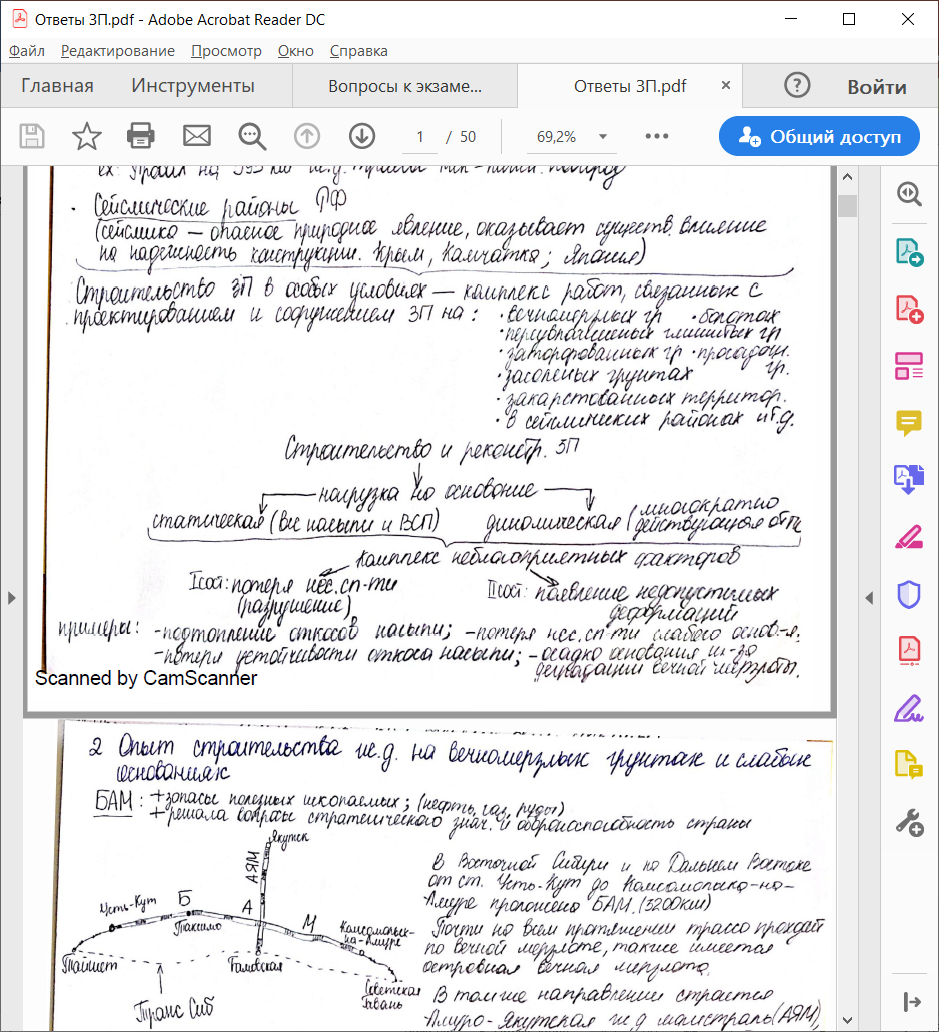 Ответы ЗП.pdf - Adobe Acrobat Reader DC
Файл Редактирование Просмотр Окно Справка
Главная Инструменты Вопросы к экзаме... Ответы ЗП.pdf × ? Войти
1 / 50 69,2% Общий доступ
на 595 км ж.д.
· Сейсмические районы РФ
(сейсмика — опасное природное явление, оказывает существ. влияние
на надежность конструкции. Крым, Камчатка; Япония)
Строительство ЗП в особых условиях — комплекс работ, связанных с
проектированием и сооружением ЗП на: · вечномерзлых гр · болотах
· переувлажненных глинистых гр
· заторфованных гр · просадочн.
· засоленых грунтах гр.
· закарстованных территор.
· в сейсмических районах и т.д.
Строительство и реконстр. ЗП
нагрузка на основание
статическая (вес насыпи и ВСП) динамическая (многократно
действующая от ПС
Комплекс неблагоприятных факторов
I сост: потеря нес. сп-ти II сост: появление недопустимых
(разрушение) деформаций
примеры: -подтопление откосов насыпи; -потеря нес. сп-ти слабого основ-я.
-потеря устойчивости откоса насыпи; -осадка основания из-за
деградации вечной мерзлоты.
Scanned by CamScanner
2 Опыт строительства ж.д. на вечномерзлых грунтах и слабых
основаниях
БАМ: +запасы полезных ископаемых; (нефть, газ, руды)
+решала вопросы стратегического знач. и обороноспособность страны
Якутск
АЯМ
Усть-Кут Б А М
Таксимо
Комсомольск-
на-Амуре
Тайшет
Тымовская
Советская
Гавань
Транс Сиб
В Восточной Сибири и на Дальнем Востоке
от ст. Усть-Кут до Комсомольска-на-
Амуре проложена БАМ. (3200км)
Почти на всем протяжении трасса проходит
по вечной мерзлоте, также имеется
островная вечная мерзлота.
В том же направлении строится
Амуро-Якутская ж.д магистраль (АЯМ),